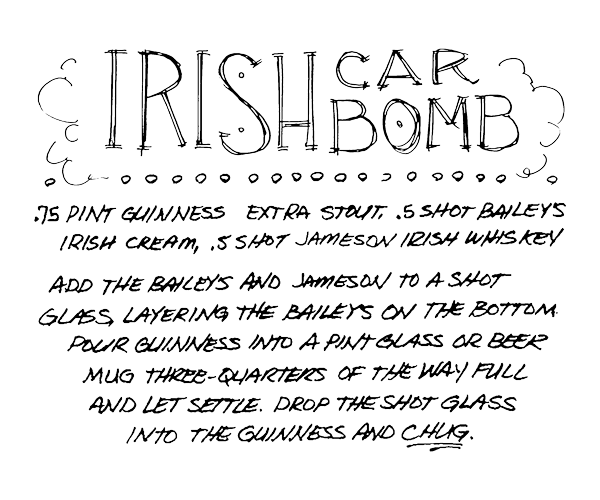 IRISH CAR BOMB
.75 PINT GUINNESS EXTRA STOUT, .5 SHOT BAILEY'S
IRISH CREAM, .5 SHOT JAMESON IRISH WHISKEY
ADD THE BAILEY'S AND JAMESON TO A SHOT
GLASS, LAYERING THE BAILEY'S ON THE BOTTOM.
POUR GUINNESS INTO A PINT GLASS OR BEER
MUG THREE-QUARTERS OF THE WAY FULL
AND LET SETTLE. DROP THE SHOT GLASS
INTO THE GUINNESS AND CHUG.